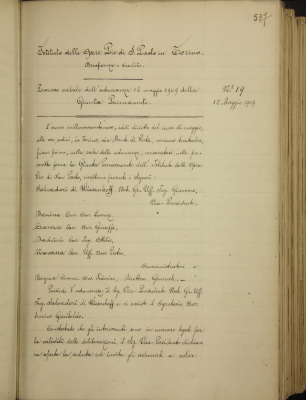 537
Istituto delle Opere Pie di S. Paolo in Torino.
Beneficenza e Credito.
Processo verbale dell'adunanza 12 maggio 1909 della
Giunta Permanente.
N.° 19
12 Maggio 1909
L'anno millenovecentonove, addì dodici del mese di maggio,
alle ore undici, in Torino, via Monte di Pietà, numero trentadue,
piano primo, nella sala delle adunanze,
la Giunta Permanente dell'Istituto delle Opere
Pie di San Paolo, coll'intervento dei Signori:
Salvadori di Wiesenhoff Nob. Gr. Uff. Ing. Giovanni,
Vice-Presidente.
Cav. Avv.
Cav. Avv. Giuseppe,
Cav. Ing. Attilio,
Cav. Uff. Avv. Pietro,
Amministratori e
Cav. Avv. Federico, Direttore Generale.
Presiede l'adunanza il Sig. Vice-Presidente Nob. Gr. Uff.
Ing. Salvadori di Wiesenhoff e vi assiste il Segretario,
Garibaldi.
Constatato che gli intervenuti sono in numero legale per
la validità delle deliberazioni, il Sig. Vice-Presidente dichiara
aperta la seduta ed invita gli adunati a